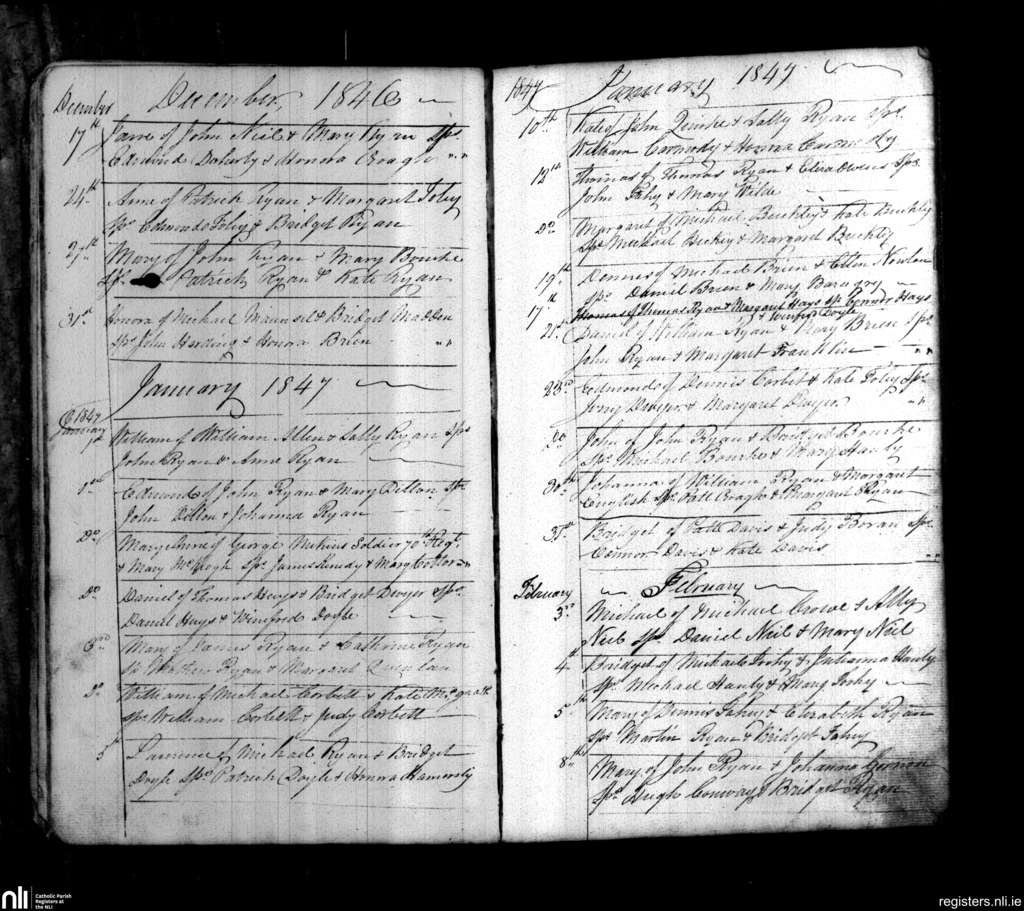 December 1846
December
17th Jane of John Neil & Mary Ryan Sps.
Edmund Doherty & Honora Croagh
24th Anne of Patrick Ryan & Margaret Foley
Sps Edmund Foley & Bridget Ryan
27th Mary of John Ryan & Mary Bourke
Sps. Patrick Ryan & Kate Ryan
31st Honora of Michael Maunsel & Bridget Madden
Sps John Harding & Honora Brien
January 1847
1847
January
1st William of William Allen & Sally Ryan Sps
John Ryan & Anne Ryan
1st Edmund of John Ryan & Mary Dillon Sps
John Dillon & Johanna Ryan
Do Mary Anne of George Soldier 70th Regt.
& Mary Sps. James & Mary
Do Daniel of Thomas Hays & Bridget Dwyer Sps.
Daniel Hays & Winifred Doyle
3rd Mary of James Ryan & Catherine Ryan
Ryan & Margaret Quinlan
Do William of Michael Corbett & Kate McGrath
Sps William Corbett & Judy Corbett
5th of Michael Ryan & Bridget
Doyle Sps Patrick Doyle & Honora Hammersly
1847 January 1847
10th Kate of John Quirke & Sally Ryan Sps.
William Carmody & Honora Carmody
12th Thomas of Thomas Ryan & Eliza Owens Sps.
John Fahy & Mary Wilde
Do Margaret of Michael Buckley & Kate Buckley
Sps Michael Hickey & Margaret Buckley
19th Dennis of Michael Brien & Ellen Nowlan
Sps Daniel Brien & Mary
17th Thomas of Thomas Ryan & Margaret Hays Sps Connor Hays
& Winifred Doyle
21st Daniel of William Ryan & Mary Brien Sps
John Ryan & Margaret Franklin
23rd Edmond of Dennis Corbet & Kate Foley Sps
Jerry Dwyer & Margaret Dwyer
Do John of John Ryan & Bridget Bourke
Sps Michael Bourke & Mary Hanly
30th Johanna of William Ryan & Margaret
English Sps Patt Croagh & Margaret Ryan
31st Bridget of Patt Davis & Judy Sps
Connor Davis & Kate Davis
February February
3rd Michael of Michael Crowe & Ally
Neil Sps Daniel Neil & Mary Neil
4th Bridget of Michael & Johanna Hanly
Sps Michael Hanly & Mary
5th Mary of Dennis Fahy & Elizabeth Ryan
Sps Martin Ryan & Bridget Fahy
8th Mary of John Ryan & Johanna
Sps Hugh Conway & Bridget Ryan
nli
Catholic Parish
Registers at
the NLI
registers.nli.ie